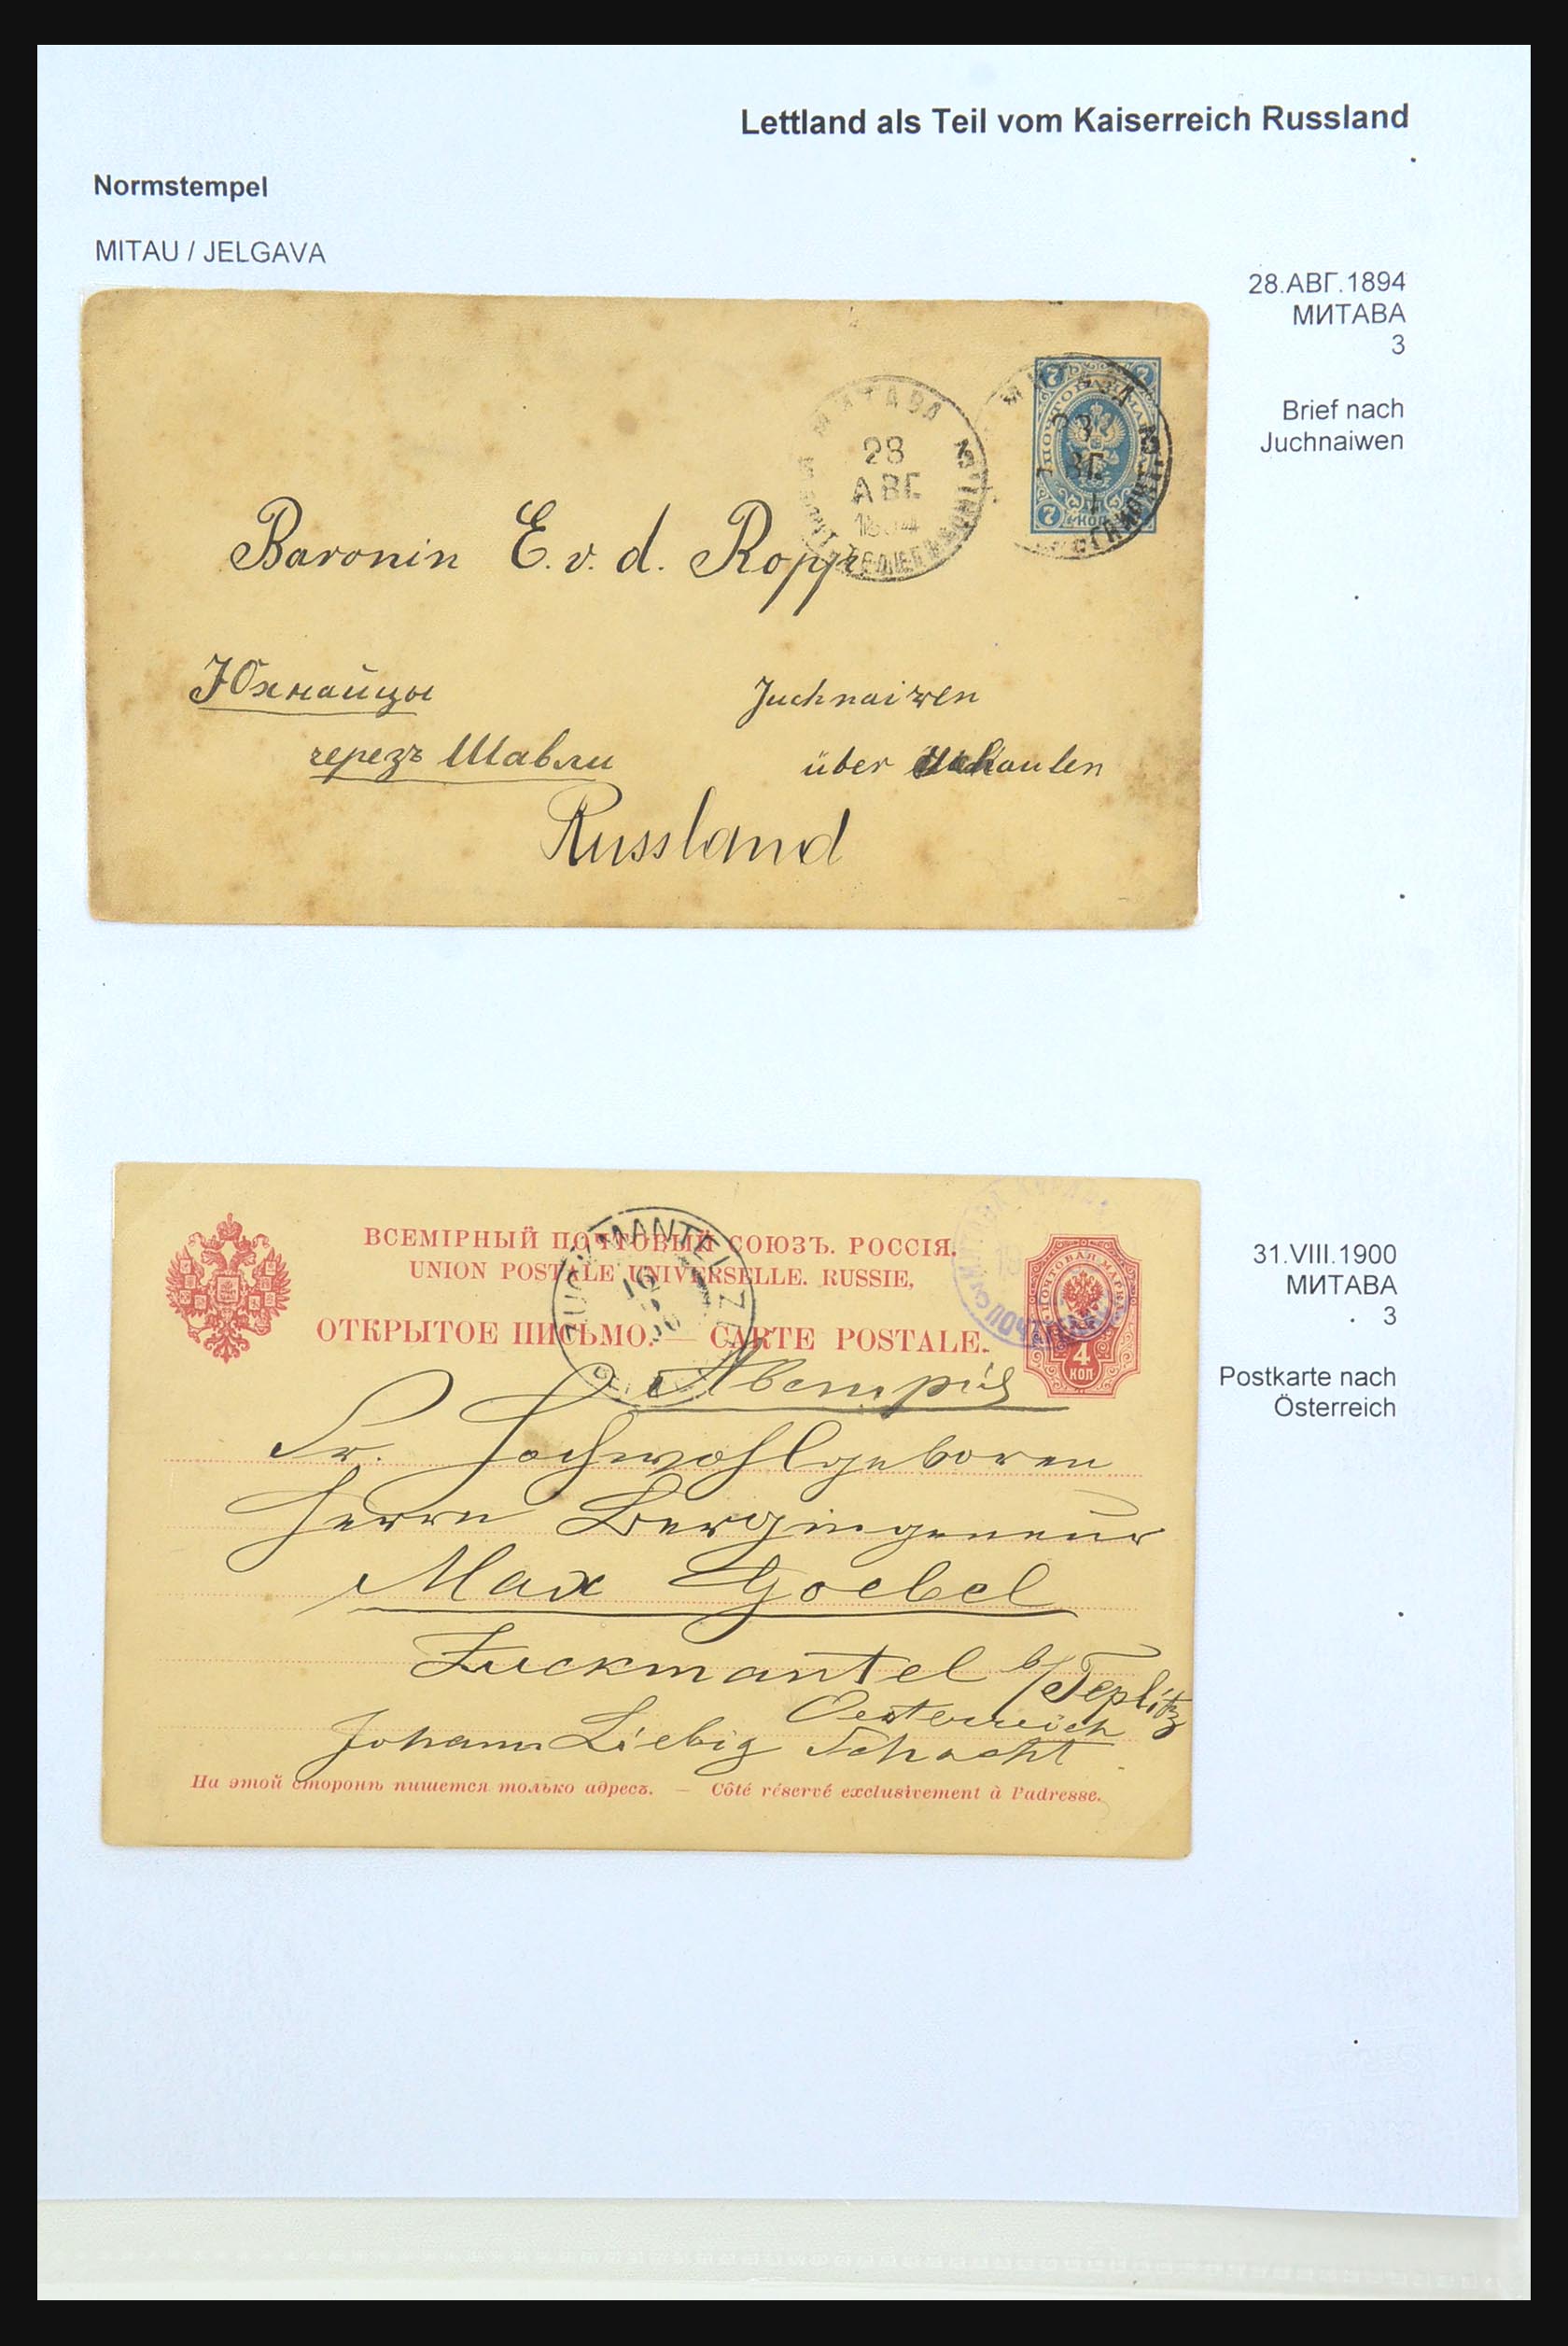 Lettland als Teil vom Kaiserreich Russland
Normstempel
MITAU / JELGAVA
28.АВГ.1894
МИТАВА
3
Brief nach
Juchnaiwen
МИТАВА
28
АВГ.
3
7
7
7 КОП
7
Baronin E. v. d. Ropp
Юхнайцы
Juchnaiwen
черезъ Шавли
über
Russland
31.VIII.1900
МИТАВА
3
Postkarte nach
Österreich
ВСЕМІРНЫЙ ПОЧТОВЫЙ СОЮЗЪ. РОССІЯ.
UNION POSTALE UNIVERSELLE. RUSSIE,
ОТКРЫТОЕ ПИСЬМО. — CARTE POSTALE.
ZUCKMANTEL
ПОЧТОВАЯ МАРКА
4
КОП
Австрія
Sr. Hochwohlgeboren
Herrn Bergingenieur
Max Goebel
Zuckmantel b/Teplitz
Oesterreich
Johann Liebig Schacht
На этой сторонѣ пишется только адресъ. — Côté réservé exclusivement à l'adresse.